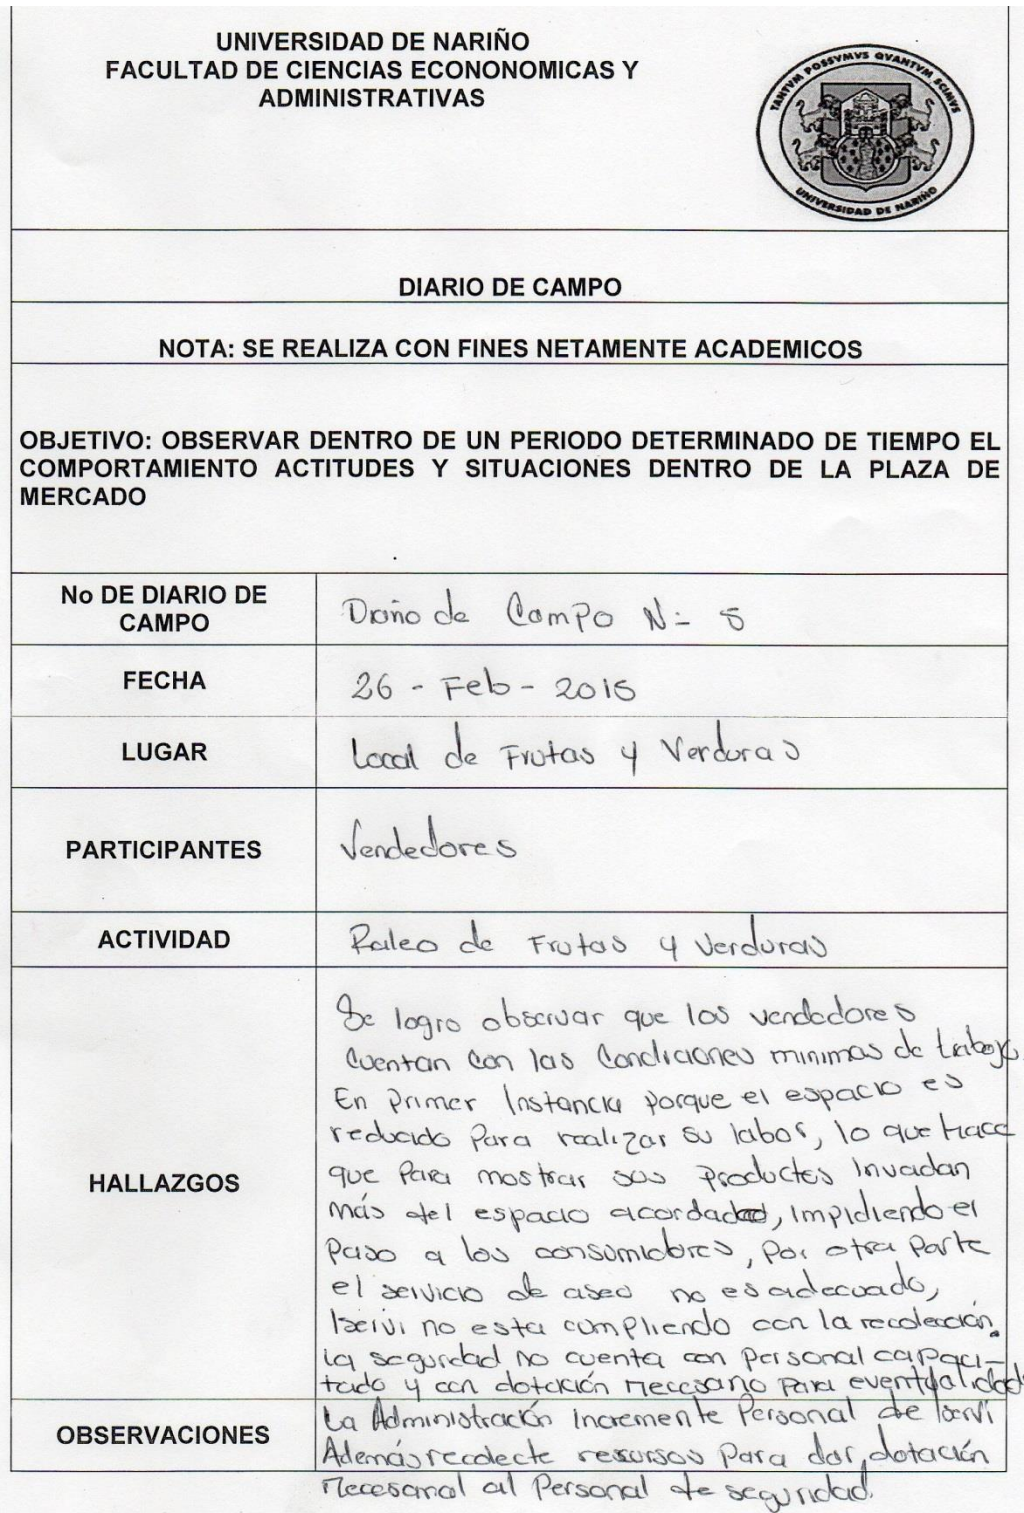 UNIVERSIDAD DE NARIÑO
FACULTAD DE CIENCIAS ECONONOMICAS Y
ADMINISTRATIVAS
TANTVM POSSVMVS QVANTVM SCIMVS
UNIVERSIDAD DE NARIÑO
DIARIO DE CAMPO
NOTA: SE REALIZA CON FINES NETAMENTE ACADEMICOS
OBJETIVO: OBSERVAR DENTRO DE UN PERIODO DETERMINADO DE TIEMPO EL
COMPORTAMIENTO ACTITUDES Y SITUACIONES DENTRO DE LA PLAZA DE
MERCADO
No DE DIARIO DE
CAMPO
Diario de Campo N- 5
FECHA
26 - Feb - 2015
LUGAR
Local de Frutas y Verduras
PARTICIPANTES
Vendedores
ACTIVIDAD
Raleo de Frutas y Verduras
HALLAZGOS
Se logro observar que los vendedores
cuentan con las Condiciones minimas de trabajo.
En Primer Instancia porque el espacio es
reducido Para realizar su labor, lo que hace
que Para mostrar sus Productos Invadan
más del espacio acordado, Impidiendo el
Paso a los consumidores, Por otra Parte
el servicio de aseo no es adecuado,
Iservi no esta cumpliendo con la recolección.
la seguridad no cuenta con Personal capaci-
tado y con dotación necesario Para eventualidad
OBSERVACIONES
La Administración Incremente Personal de Iservi
Además recolecte resursos Para dar dotación
necesarial al Personal de seguridad.